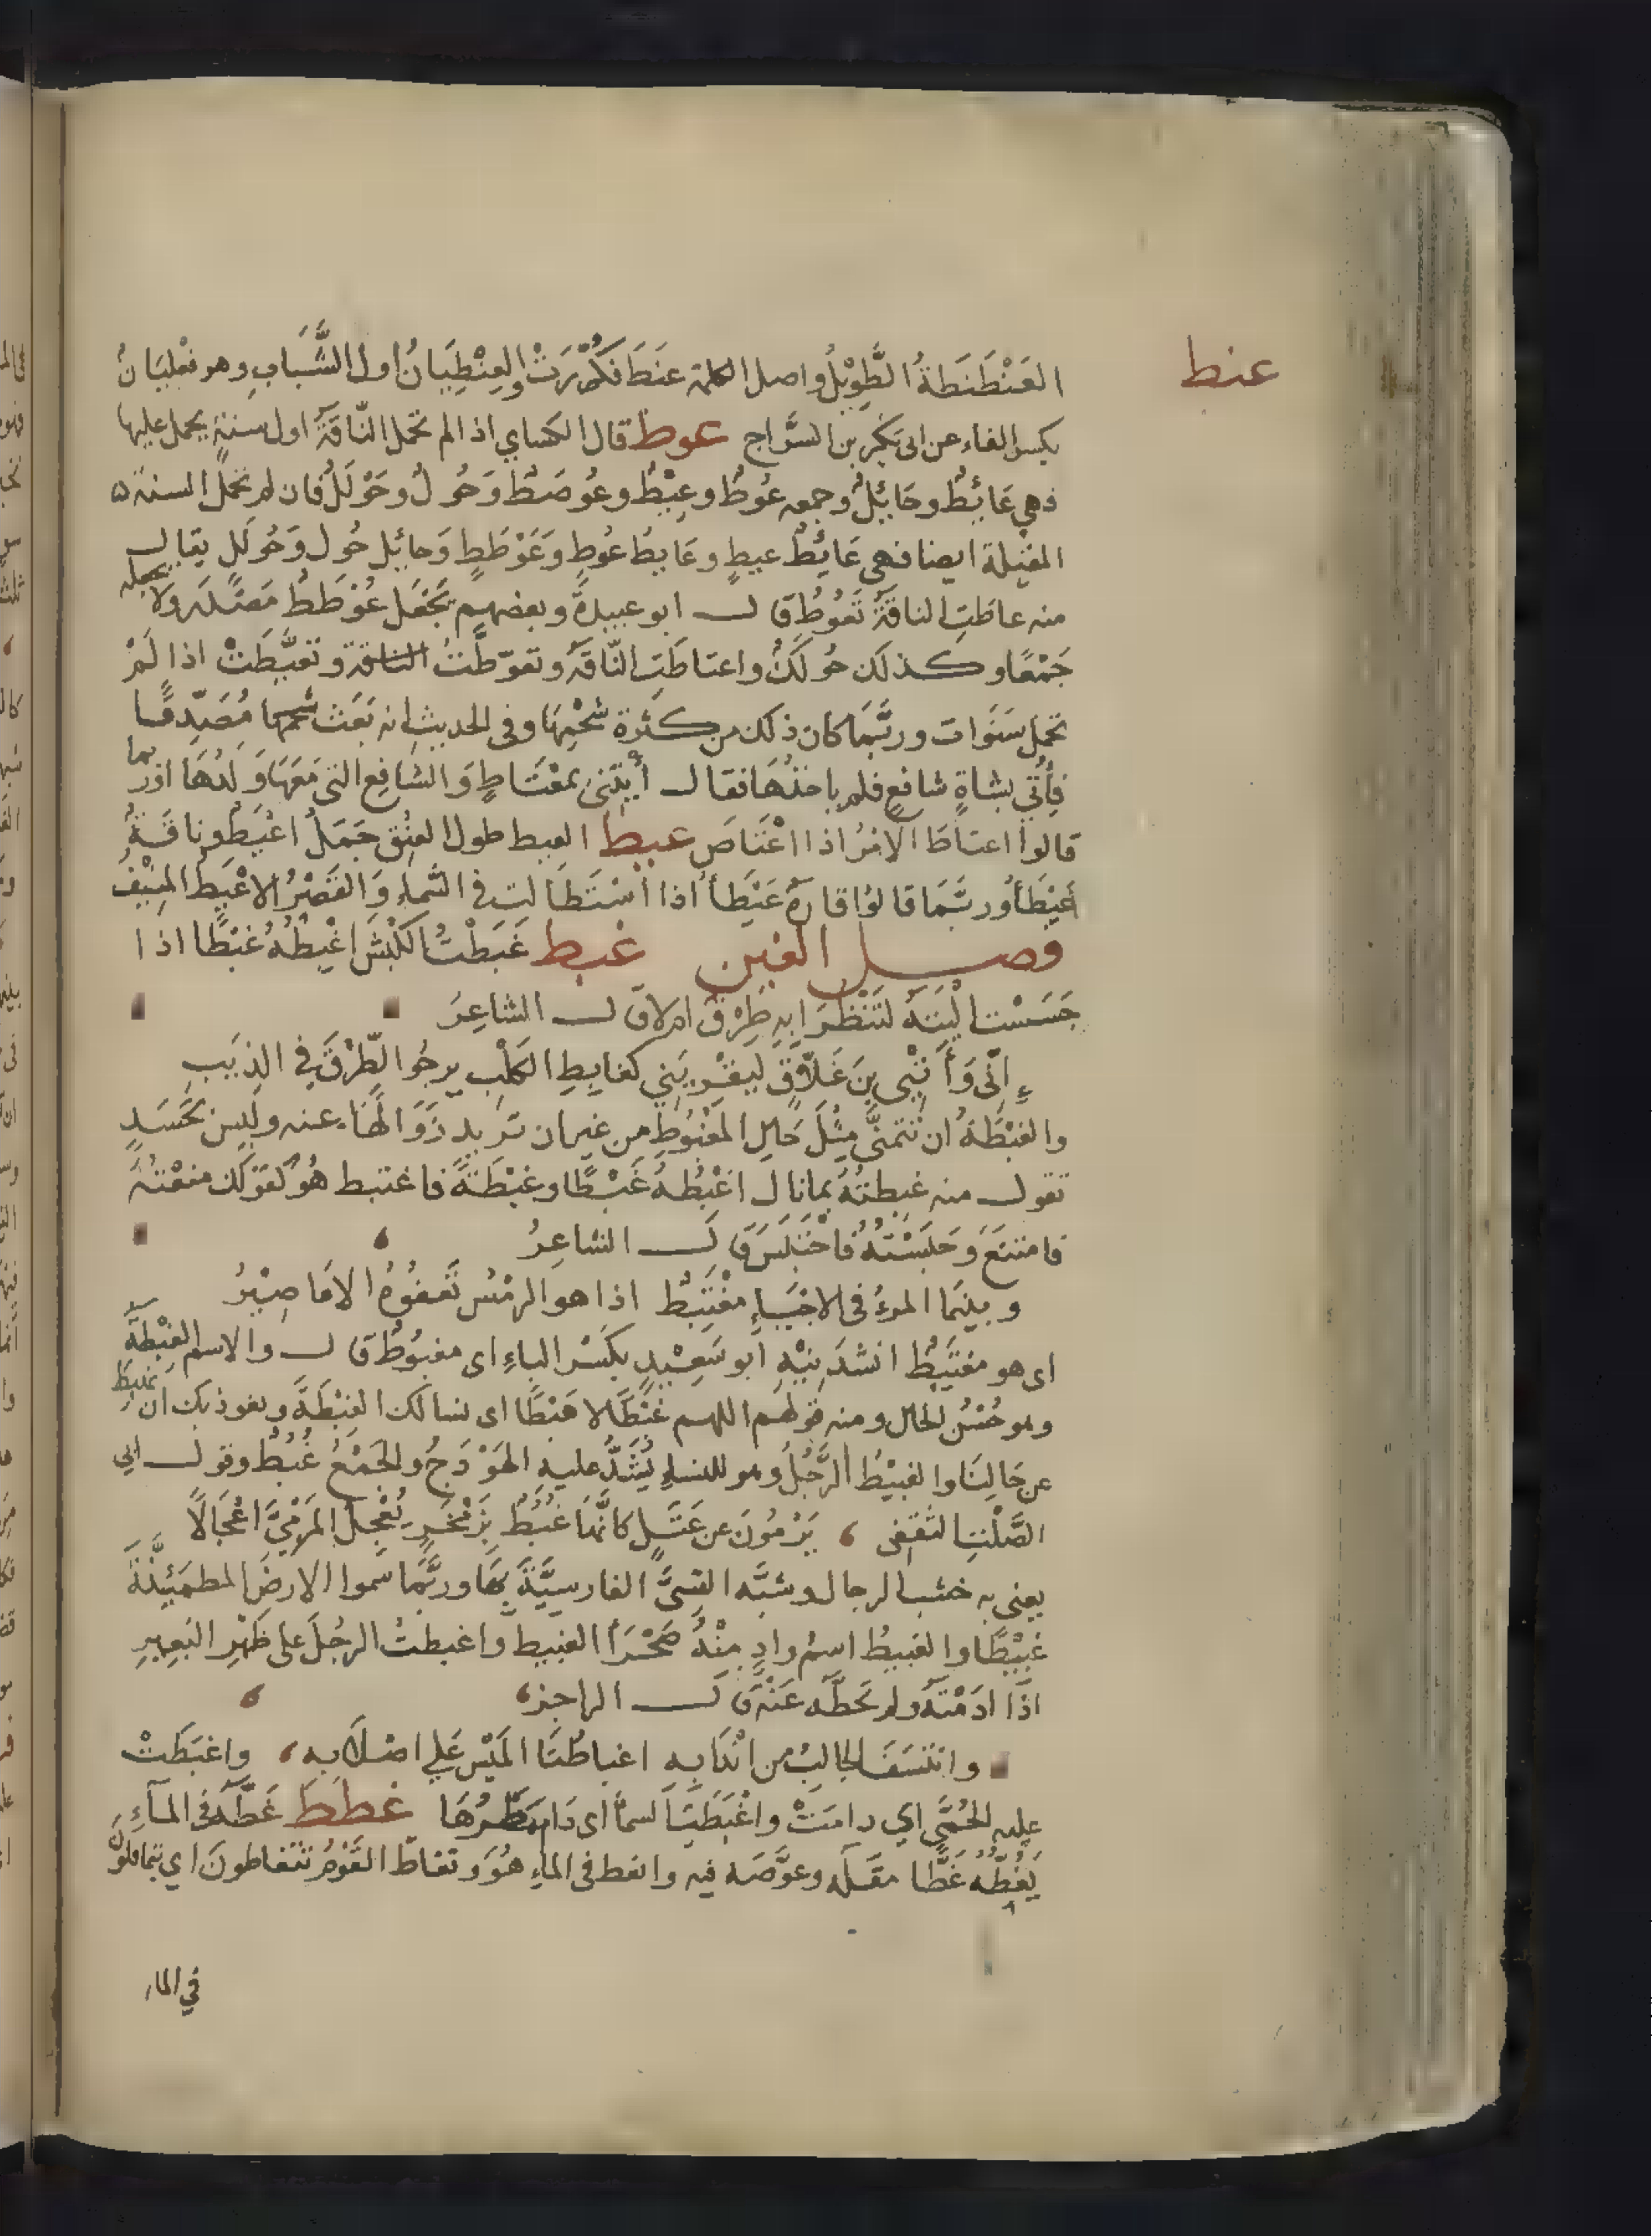 عنط
العَنَطْنَطَةُ الطَّوِيْلُ واصل الكلمة عَنَطَ فَكُرِّرَتْ والعِنْطِيَانُ اول الشَّبَابِ وهو فِعْلِيَانُ
بكسر الفاء عن ابى بَكر بن السَّرَّاج عوط قال الكساي اذا لم تحمل النّاقَةُ اول سنةٍ يحمل عليها
فهى عَائِطٌ وحَائِلٌ وجمعه عُوطٌ وعِيْطٌ وعُوطَطٌ وَحُولٌ وحُوْلَلٌ فان لم تحمل السنة
المقبلة ايضا فهى عَائِطُ عيطٍ وعَايطُ عُوطٍ وَعُوْطَطٍ وَحائِل حُول وَحُولَلٍ يقال
منه عاطَتِ الناقَةُ تَعُوطُ قال ابو عبيدةَ وبعضهم يَجْعَل عُوْطَطٌ مَصْدَر ولا يجعله
جَمْعًا وكذلك حُولَلٌ واعتاطَتِ النَّاقَةُ وتعوّطَتُ الناقة وتعيَّطَتْ اذا لَمْ
تحمل سَنَوَات وربَّمَا كان ذلك من كثرة شَحْمِهَا وفى الحديث انه بَعَثَ مُصَدِّقًا
فأُتِي بشاةٍ شافعٍ فلم ياخذْهَا فقال أيْتنى بمعْتَاطٍ وَالشافِع التى مَعَهَا وَلَدُهَا وربما
قالوا اعتاطَ الامْرُ اذا اعْتَاصَ عيط العيط طول العنُق جَمَلٌ اعْيَطُ وناقَةٌ
عَيْطَأُ وربَّمَا قالوْا قارةٌ عَيْطَأُ اذا اسْتَطَالت فى السَّماء وَالقَصْرُ الاعْيَطُ المُنِيْفُ
فصل الغين غبط غَبَطْتُ الكَبْشَ اغْبِطُهُ غَبْطًا اذا
جَسَسْتَ الْيَتَهُ لتَنْظُرَ ابِهِ طِرْقٌ ام لا قال الشاعِرُ
إنّى وَأَتْيِى بنَ غَلاَّقٍ لِيَقْرِيَني كغابِطِ الكلْب يرجُوا الطِّرْقَ فِي الذَنَبِ
والغِبْطَةُ ان تتمنَّى مِثْلَ حَالِ المغْبُوطِ من غير ان تريد زَوَالَهَا عنه وَلَيسَ بحَسَدٍ
تقول منه غبطتُهُ بما نال اغْبِطُهُ غَبْطًا وغِبْطَةً فاغتبط هُو كقوْلك منعْتُهُ
فامتنَعَ وَحَبَسْتُهُ فاحْتَبَسَ قال الشاعِرُ
وبينما المرءُ فى الاحْيَاءِ مغْتَبِطُ اذا هو الرمْسُ تَعفُوْهُ الاعَاصِيْرُ
اى هو مغتبِطُ انشدَنِيْهِ ابو سَعِيْدٍ بكَسْر الباءِ اى مغبُوطٌ قال والاسم الغِبْطَةُ
وهو حُسْنُ الحال ومنه قولهم اللهم غَبْطًا لا هَبْطًا اى نسالك الغِبْطَةَ ونعوذ بك ان نهبِطَ
عن حَالِنَا والغبِيْطُ الرَّحْلُ وهو للنساءِ يُشَدُّ عليهِ الهَوْدَجُ والجَمْعُ غُبُطٌ وقول ابى
الصَّلْتِ الثقفى يَرْمُونَ عن عَتَلٍ كانَّهَا غُبُطٌ بِزَمْخَرٍ يُعْجِلُ المَرْمِيَّ اعْجَالًا
يعنى به خشب الرحال وشبَّه القسىَّ الفارسيَّةَ بِهَا وربَّمَا سَموا الارضَ المطمَئِنَّةَ
غَبِيْطًا والغبيطُ اسم وادٍ مِنْهُ صَحْرَأُ الغبيط واغبطتُ الرحْلَ على ظَهْرِ البَعِيرِ
اذَا ادَمْتَهُ ولم تَحُطَّه عَنْه قال الراجز
وانتسَفَ الجالِبُ من انْدَابِهِ اغباطُنَا المَيْسَ عَلى اصْلَابِه واغبَطَتْ
عليه الحُمَّى اي دامَتْ واغْبَطَتِ السمآُ اى دَام مَطَرُهَا غطط غَطَّهُ فى المآءِ
يَغُطُّهُ غَطًّا مقَلَه وغوَّصَه فيه وانغط فى الماءِ هُوَ وتغاطَّ القَوْمُ يتغاطونَ اي يتماقلونَ
في الماء